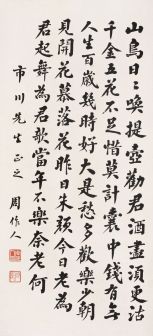 山鳥日〻喚提壺勸君酒盡須更沽
千金五花不足惜莫計囊中錢有无
人生百歲幾時好大是愁多歡樂少朝
見開花暮落花昨日朱顏今日老為
君起舞為君歌當年不樂奈老何
市川先生正之 周作人